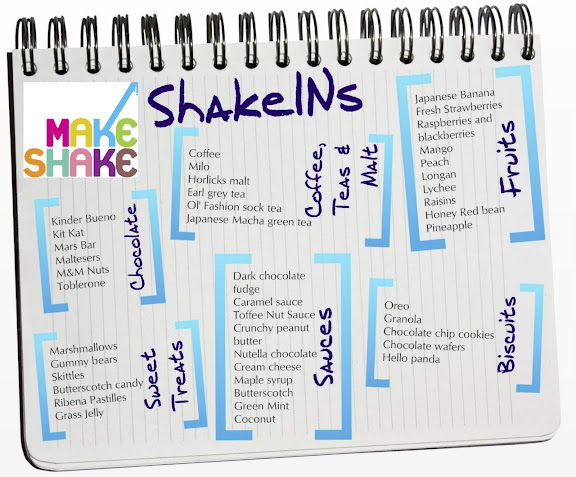 MAKE
SHAKE
ShakeINs
Coffee
Milo
Horlicks malt
Earl grey tea
Ol' Fashion sock tea
Japanese Macha green tea
Coffee,
Teas &
Malt
Japanese Banana
Fresh Strawberries
Raspberries and
blackberries
Mango
Peach
Longan
Lychee
Raisins
Honey Red bean
Pineapple
Fruits
Kinder Bueno
Kit Kat
Mars Bar
Maltesers
M&M Nuts
Toblerone
Chocolate
Dark chocolate
fudge
Caramel sauce
Toffee Nut Sauce
Crunchy peanut
butter
Nutella chocolate
Cream cheese
Maple syrup
Butterscotch
Green Mint
Coconut
Sauces
Oreo
Granola
Chocolate chip cookies
Chocolate wafers
Hello panda
Biscuits
Marshmallows
Gummy bears
Skittles
Butterscotch candy
Ribena Pastilles
Grass Jelly
Sweet
Treats